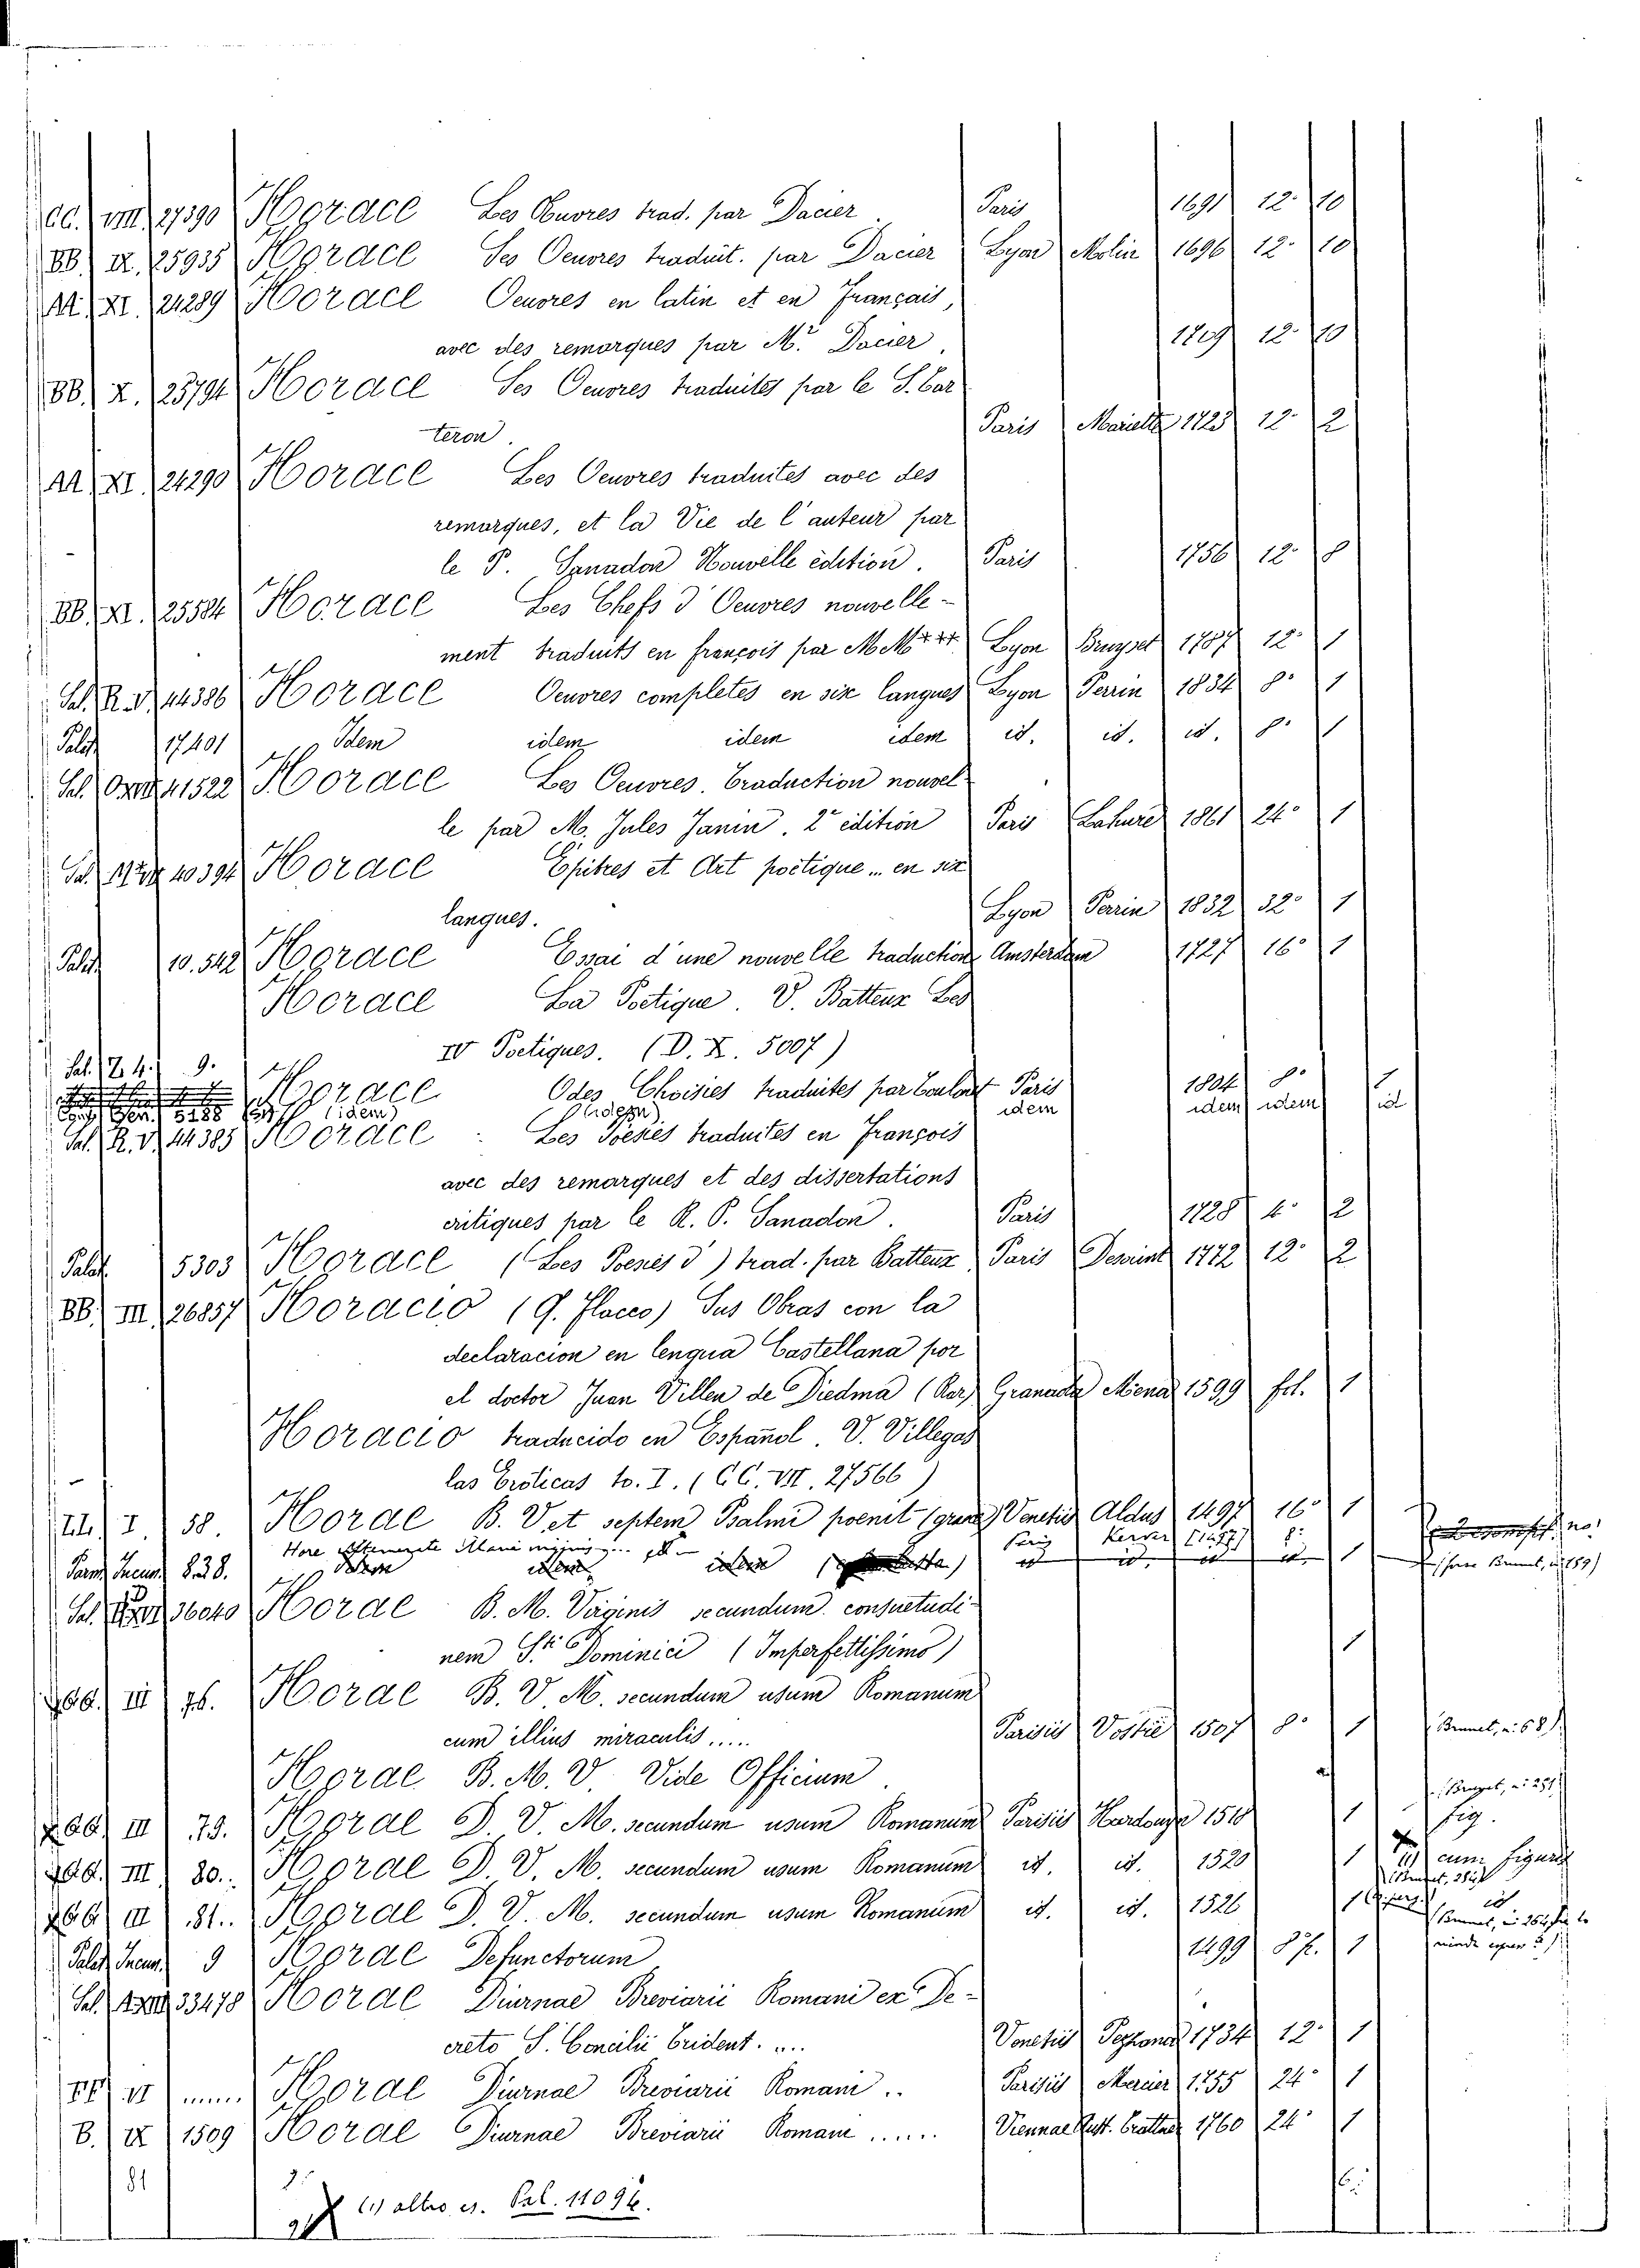 CC. VIII. 27390 Horace Les Œuvres trad. par Dacier. Paris 1691 12º 10
BB. IX. 25935 Horace Ses Oeuvres traduit. par Dacier Lyon Molin 1696 12º 10
AA. XI. 24289 Horace Oeuvres en latin et en Français,
avec des remarques par Mr. Dacier. 1709 12º 10
BB. X. 25794 Horace Ses Oeuvres traduites par le S. Tar
teron. Paris Mariette 1723 12º 2
AA. XI. 24290 Horace Les Oeuvres traduites avec des
remarques, et la Vie de l'auteur par
le P. Sanadon Nouvelle édition. Paris 1756 12º 8
BB. XI. 25584 Horace Les Chefs d'Oeuvres nouvelle-
ment traduits en françois par M. M*** Lyon Bruyset 1787 12º 1
Sal. R. V. 44386 Horace Oeuvres completes en six langues Lyon Perrin 1834 8º 1
Palat. 17401 Idem idem idem idem id. id. id. 8º 1
Sal. 41522 Horace Les Oeuvres. Traduction nouvel-
le par M. Jules Janin. 2e édition Paris Lahure 1861 24º 1
Sal. 40394 Horace Epitres et Art poétique... en six
langues. Lyon Perrin 1832 32º 1
Palat. 10.542 Horace Essai d'une nouvelle traduction Amsterdam 1727 16º 1
Horace La Poétique. V. Batteux Les
IV Poetiques. (D. X. 5007)
Sal. 24. 9. Horace Odes Choisies traduites par Coulont Paris 1804 8º 1
3288 (idem) (idem) idem idem idem id
Sal. R. V. 44385 Horace Les Poésies traduites en François
avec des remarques et des dissertations
critiques par le R. P. Sanadon. Paris 1728 4º 2
Palat. 5303 Horace (Les Poesies d') trad. par Batteux Paris Dessaint 1772 12º 2
BB. III. 26857 Horacio (Q. Flacco) Sus Obras con la
declaracion en lengua Castellana por
el doctor Juan Villen de Biedma (Rar) Granada Mena 1599 fol. 1
Horacio traducido en Español. V. Villegas
las Eroticas to. I. (CC. VII. 27566)
I. 58. Horae B. V. et septem Psalmi poenit. (graece) Venetiis Aldus 1497 16º 1
Hore Paris Kerver 8º
Parm. Incun. 828. Idem idem idem id id. id id. 1
Sal. 36040 Horae B. M. Virginis secundum consuetudi-
nem Sti. Dominici (Imperfettissimo) 1
III 76. Horae B. V. M. secundum usum Romanum
cum illius miraculis..... Parisiis Vostre 1507 8º 1 Brunet, n. 68
Horae B. M. V. Vide Officium.
Brunet, n. 251
III 79. Horae D. V. M. secundum usum Romanum Parisiis Hardouyn 1518 1 fig.
III 80. Horae D. V. M. secundum usum Romanum id. id. 1520 1 cum figuris
III 81. Horae D. V. M. secundum usum Romanum id. id. 1526 1 id
Palat. Incun. 9 Horae Defunctorum 1499 8º 1
Sal. 33478 Horae Diurnae Breviarii Romani ex De-
creto S. Concilii Trident. ... Venetiis Pezzana 1734 12º 1
Horae Diurnae Breviarii Romani .. Parisiis Mercier 1755 24º 1
B. IX 1509 Horae Diurnae Breviarii Romani ...... Viennae Aust. Trattner 1760 24º 1
81 6.
(1) altro es. Pal. 11096.